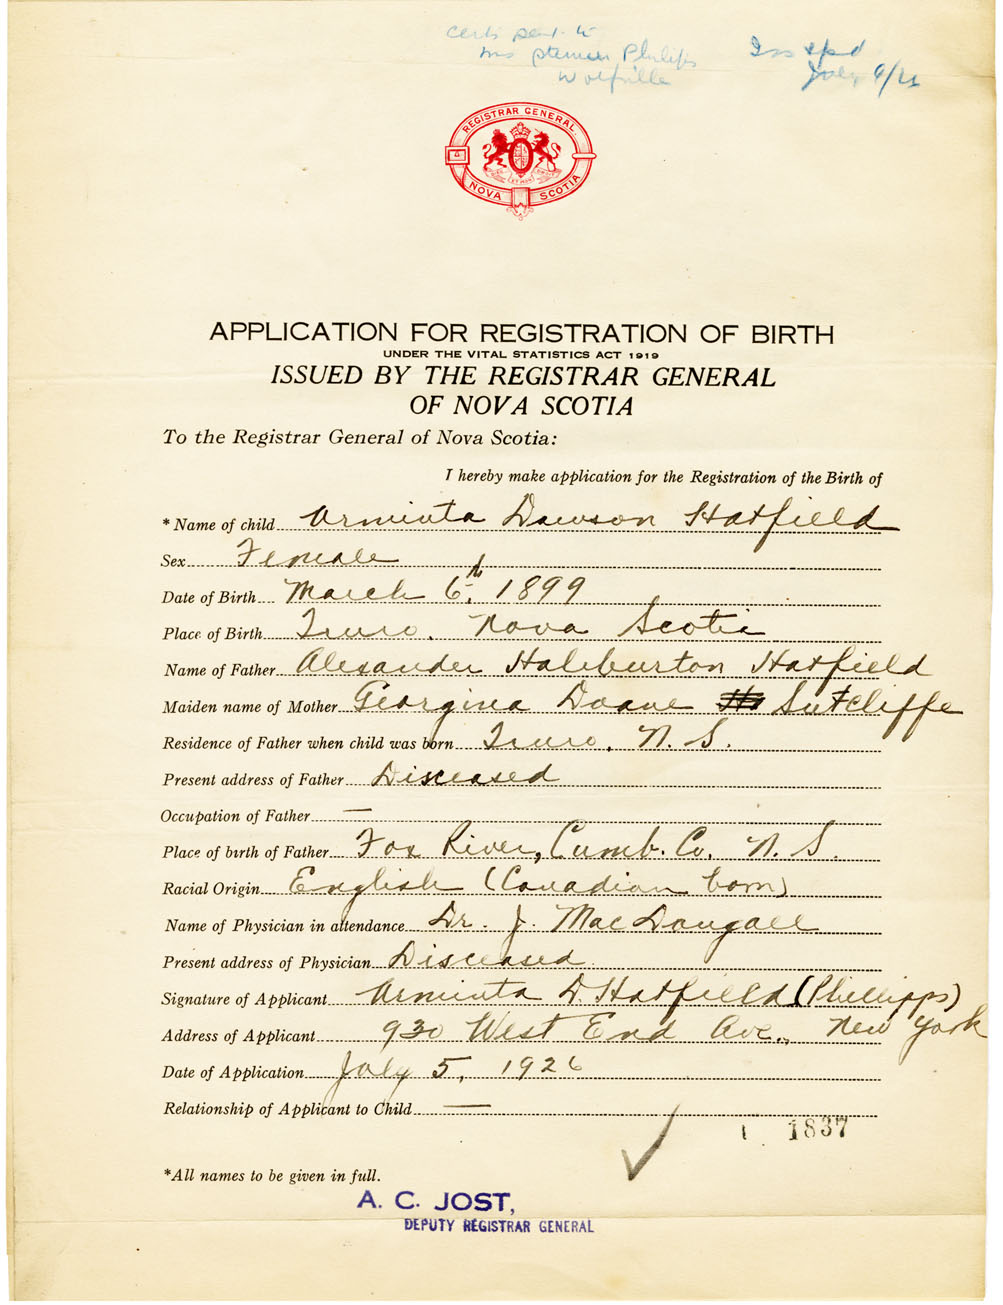 Certi sent to
Mrs Phillips
Wolfville
Iss & pd
July 9/26
REGISTRAR GENERAL
NOVA SCOTIA
APPLICATION FOR REGISTRATION OF BIRTH
UNDER THE VITAL STATISTICS ACT 1919
ISSUED BY THE REGISTRAR GENERAL
OF NOVA SCOTIA
To the Registrar General of Nova Scotia:
I hereby make application for the Registration of the Birth of
*Name of child Arminta Dawson Hatfield
Sex Female
Date of Birth March 6th, 1899
Place of Birth Truro, Nova Scotia
Name of Father Alexander Haliburton Hatfield
Maiden name of Mother Georgina Doane Sutcliffe
Residence of Father when child was born Truro, N. S.
Present address of Father Disceased
Occupation of Father —
Place of birth of Father Fox River, Cumb. Co. N. S.
Racial Origin English (Canadian born)
Name of Physician in attendance Dr. J. MacDougall
Present address of Physician Disceased
Signature of Applicant Arminta D. Hatfield (Phillipps)
Address of Applicant 930 West End Ave., New York
Date of Application July 5, 1926
Relationship of Applicant to Child —
1837
*All names to be given in full.
A. C. JOST,
DEPUTY REGISTRAR GENERAL